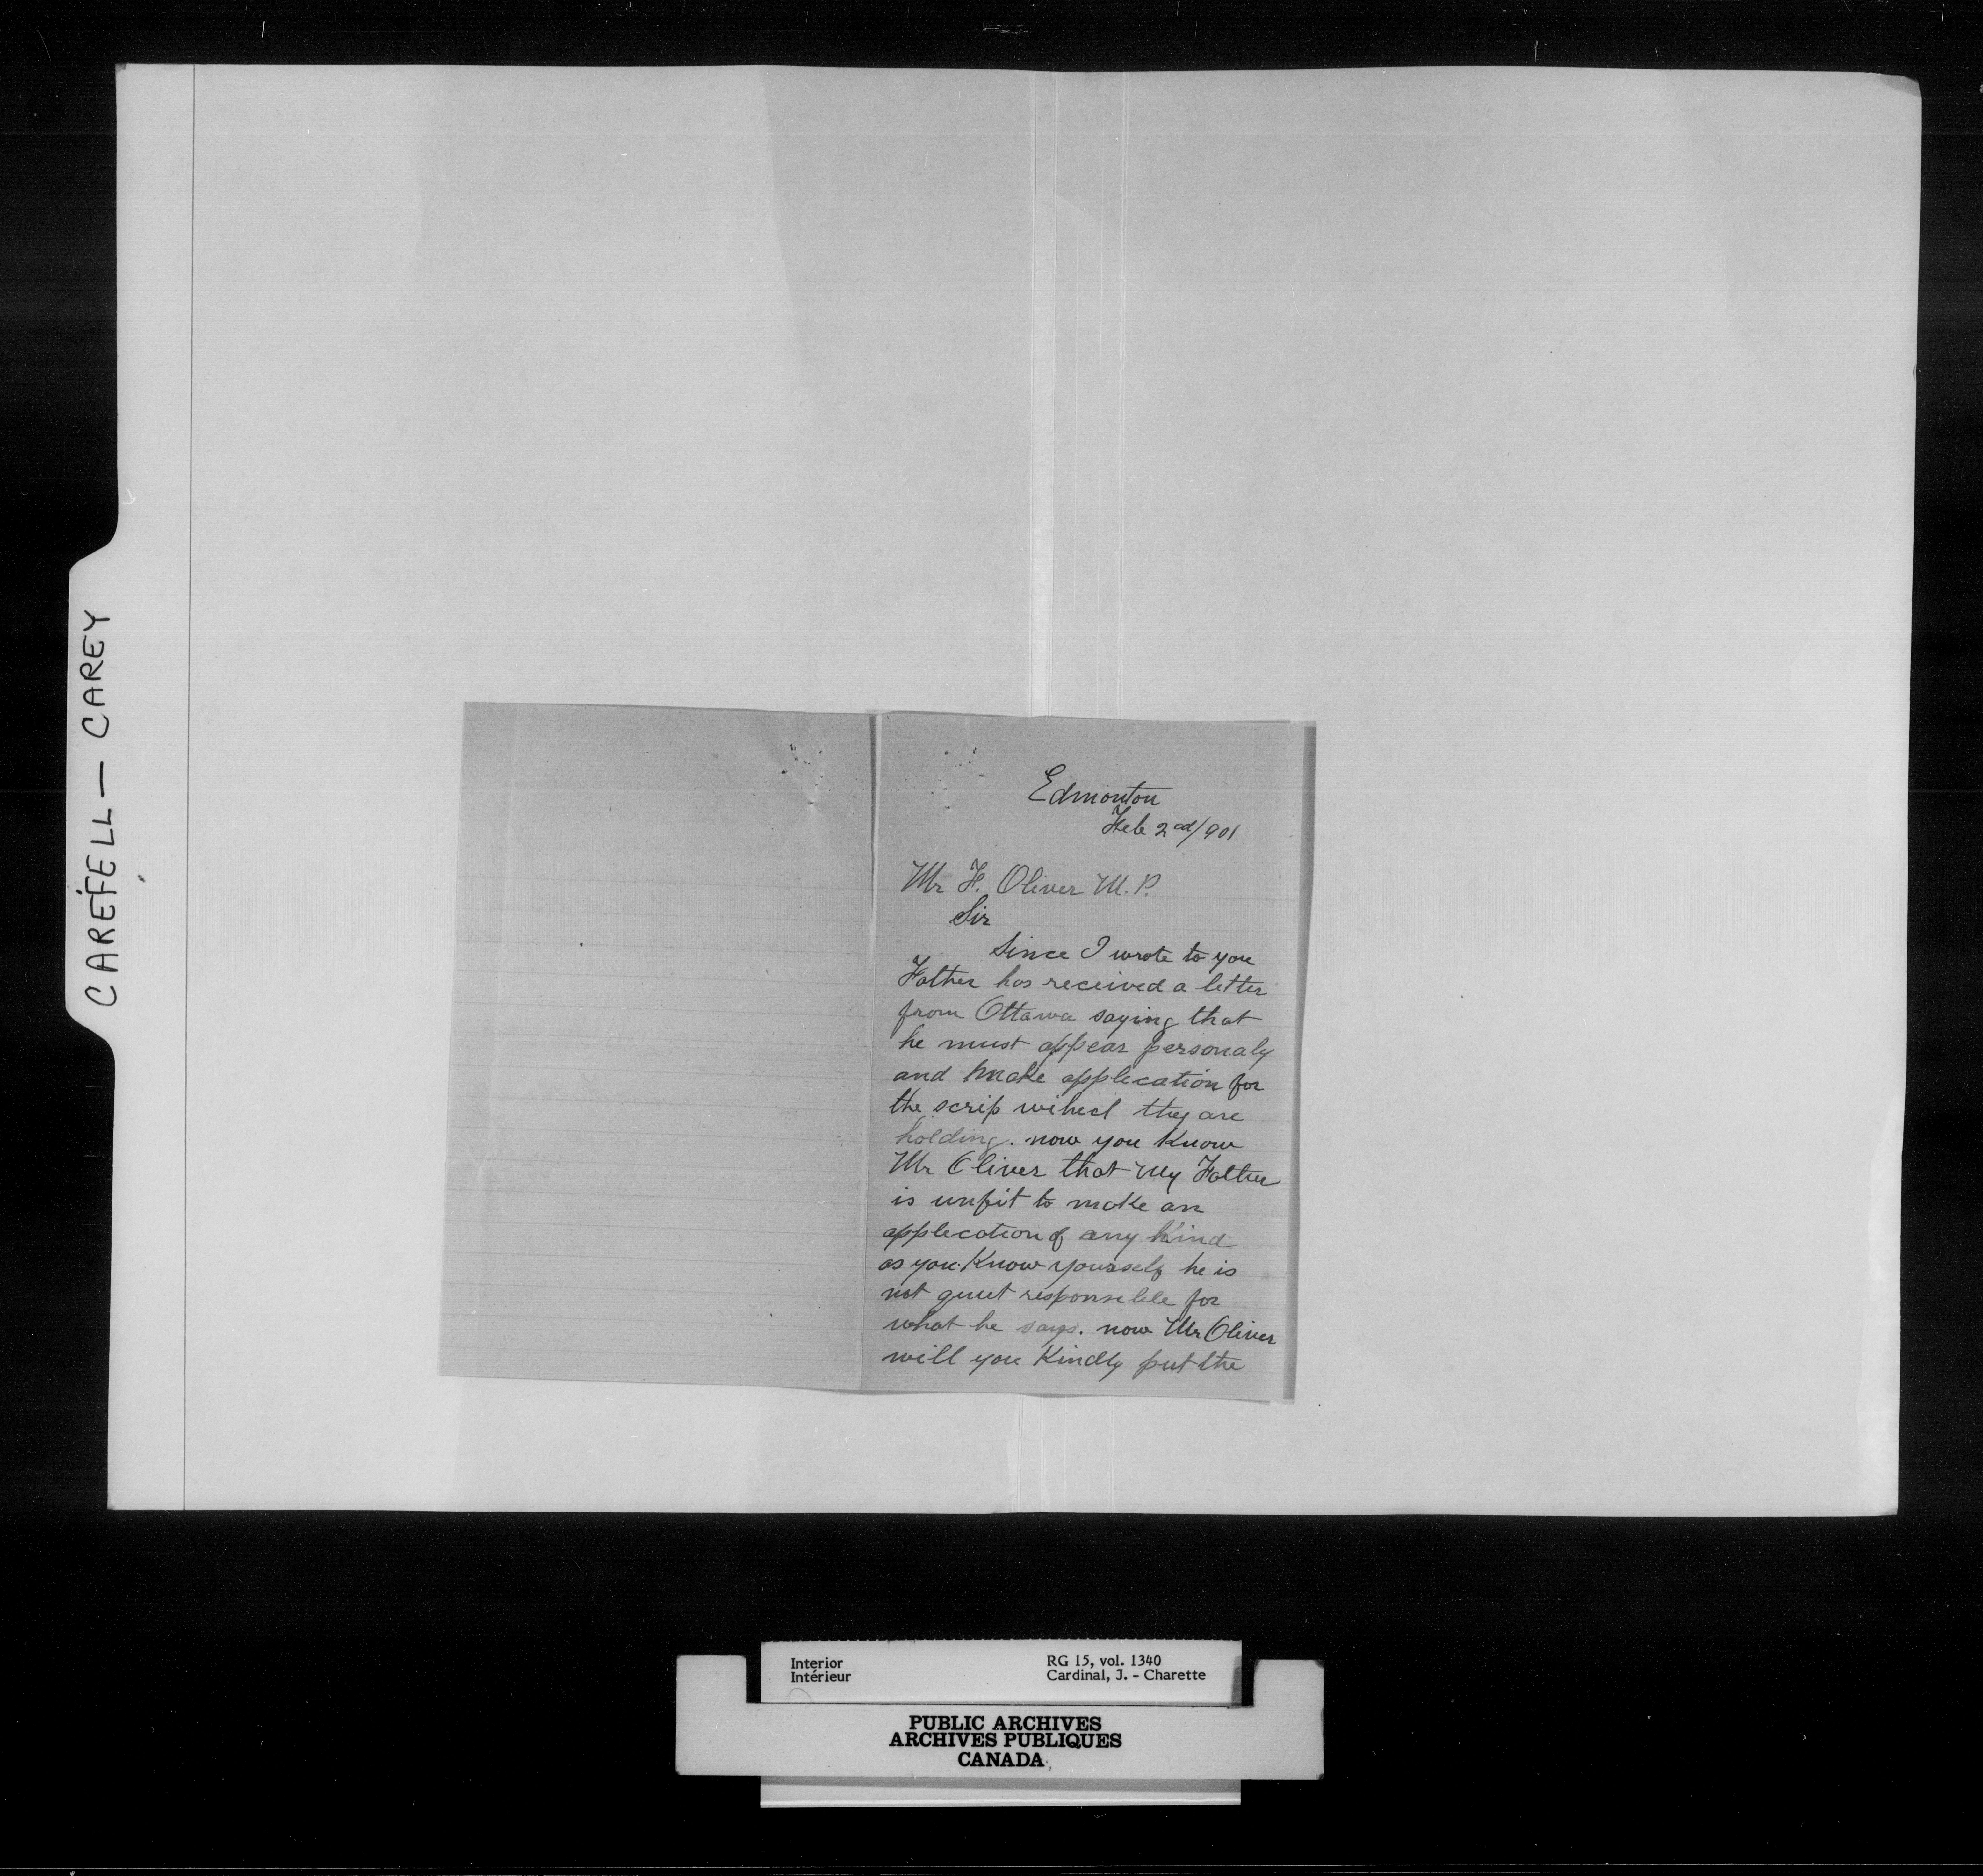 CAREFELL — CAREY
Edmonton
Feb 2cd/901
Mr F. Oliver M.P.
Sir
Since I wrote to you
Father has received a letter
from Ottawa saying that
he must appear personaly
and make applecation for
the scrip wihecl they are
holding. now you Know
Mr Oliver that my Father
is unfit to make an
applecation of any Kind
as you Know yourself he is
not quiet responsible for
what he says. now Mr Oliver
will you Kindly put the
Interior
Intérieur
RG 15, vol. 1340
Cardinal, J. - Charette
PUBLIC ARCHIVES
ARCHIVES PUBLIQUES
CANADA